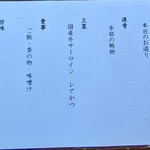 本日のお造り
進肴
季節の椀物
主菜
国産牛サーロイン レアかつ
食事
ご飯 香の物 味噌汁
甘味